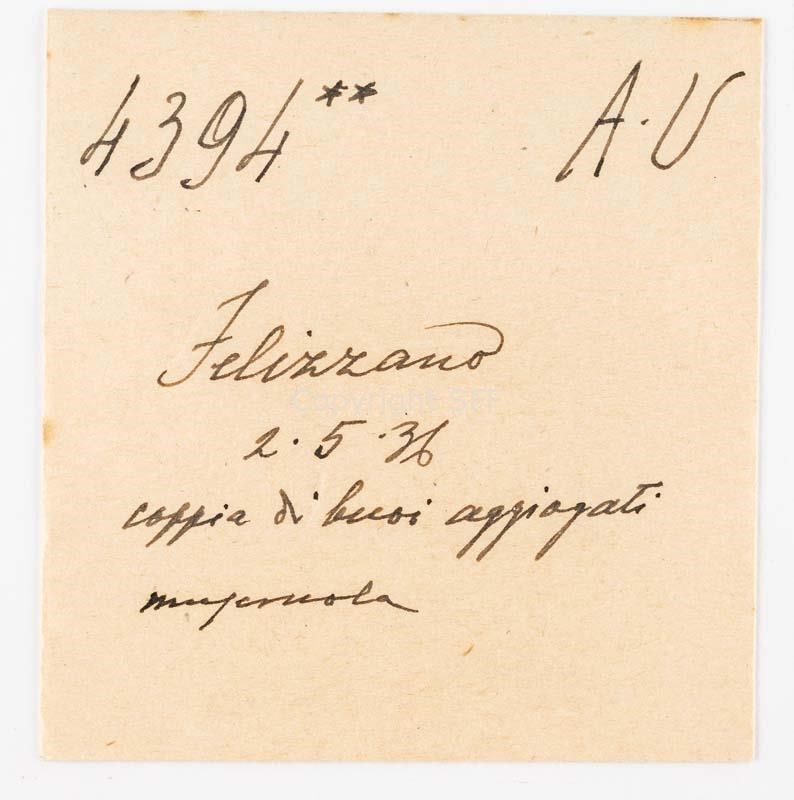 4394** A.V
Felizzano
2.5.36
coppia di buoi aggiogati
museruola